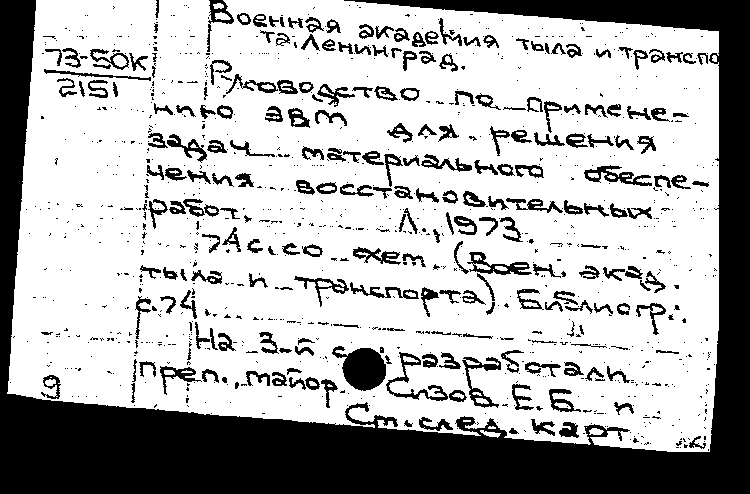 Военная академия тыла и транспо
та, Ленинград.
73-50к
2151
Руководство по примене-
нию ЭВМ для решения
задач материального обеспе-
чения восстановительных
работ. Л., 1973.
74 с. со схем. (Воен. акад.
тыла и транспорта). Библиогр.:
с. 74.
На 3-й с. разработали
преп., майор Сизов Е.Б. и
9
Ст. след. карт.